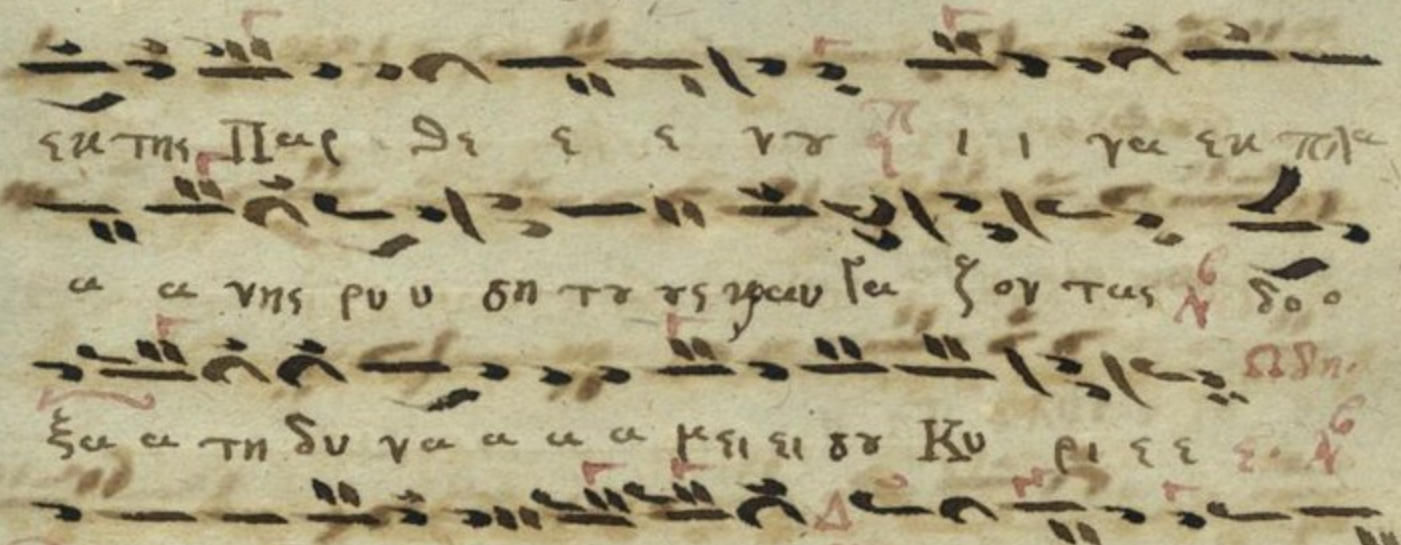 εκ της Παρ θε ε ε νου ι ι να εκ πλα
α α νης ρυ υ ση του ους κραυ γα ζον τας δο ο
ξα α τη δυ να α α α μει ει σου Κυ ρι ε ε Ωδη ε